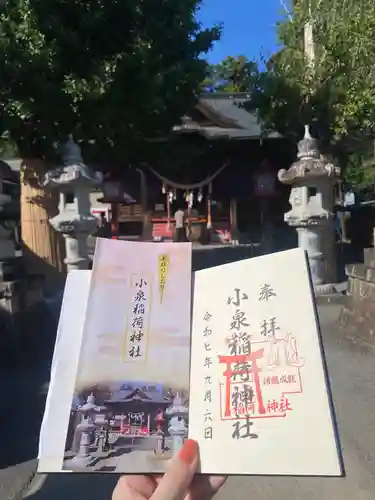 小泉稲荷神社
奉拝
小泉稲荷神社
稲荷神社
令和七年九月六日